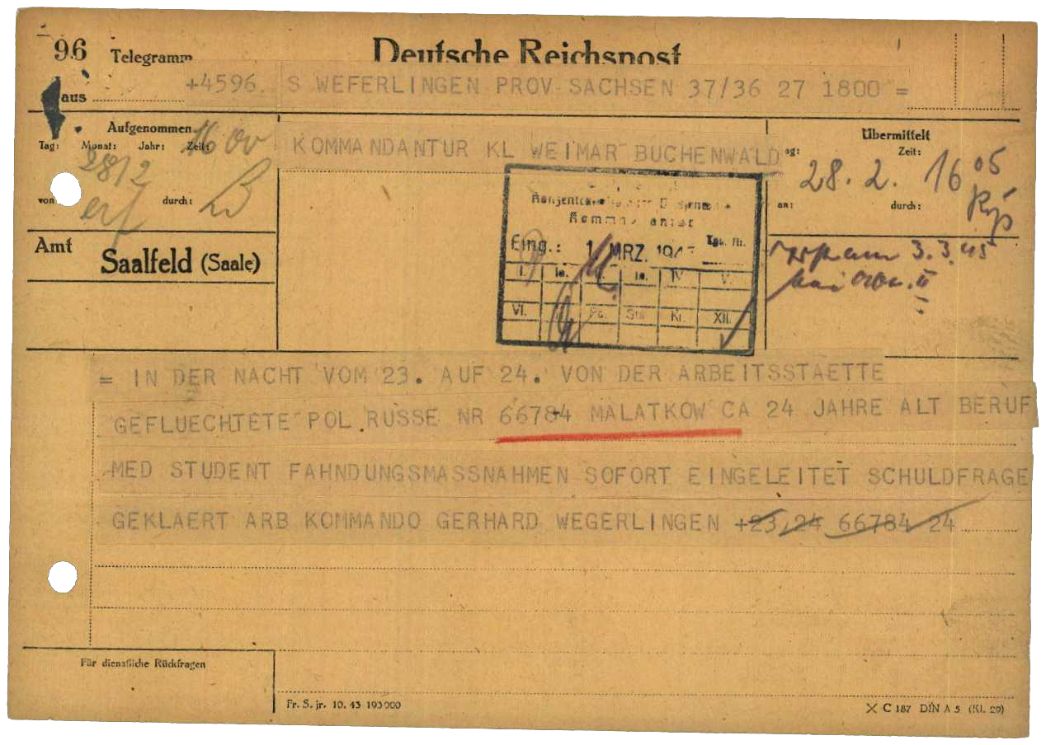 96 Telegramm Deutsche Reichspost
aus +4596 S WEFERLINGEN PROV SACHSEN 37/36 27 1800 =
Aufgenommen
Tag: Monat: Jahr: Zeit:
von: durch:
KOMMANDANTUR KL WEIMAR BUCHENWALD
Übermittelt
Tag: Zeit:
28. 2. 16 05
an: durch:
Amt Saalfeld (Saale)
Eing.: 1 MRZ. 194
I. Ia. IV V.
VI. Ki. XII.
3.3.45
= IN DER NACHT VOM 23. AUF 24. VON DER ARBEITSSTAETTE
GEFLUECHTETE POL RUSSE NR 66784 MALATKOW CA 24 JAHRE ALT BERUF
MED STUDENT FAHNDUNGSMASSNAHMEN SOFORT EINGELEITET SCHULDFRAGE
GEKLAERT ARB KOMMANDO GERHARD WEGERLINGEN +23,24 66784 24
Für dienstliche Rückfragen
Fr. S. jr. 10. 43 193000
X C 187 DIN A 5 (Kl. 29)